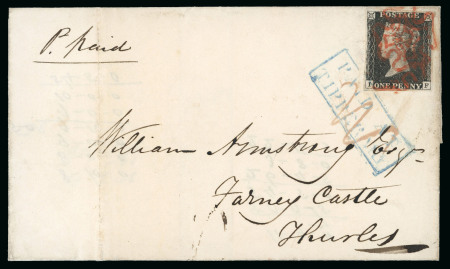 P. Paid
POSTAGE
ONE PENNY
William Armstrong Esqr
Farney Castle
Thurles